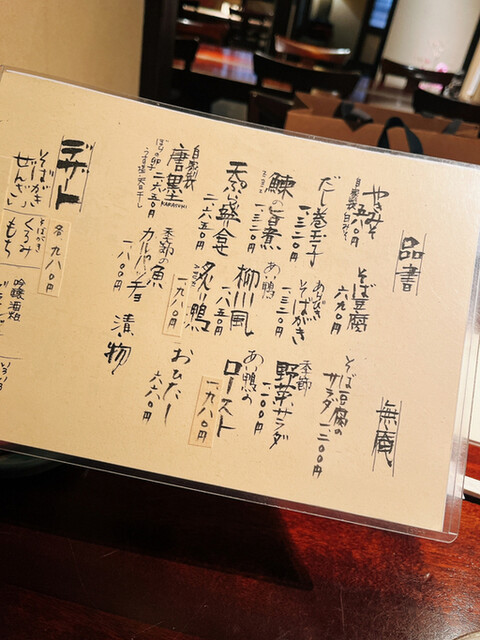 品書
無庵
やきみそ
自家製白みそ
五八〇円
そば豆腐
六九〇円
そば豆腐の
サラダ
一、二〇〇円
だし巻玉子
一、三二〇円
あらびき
そばがき
一、三二〇円
季節
野菜サラダ
一、一〇〇円
鰊の旨煮
一、三二〇円
あい鴨
柳川風
一、六五〇円
あい鴨の
ロースト
一、九八〇円
天ぷら盛合せ
二、六五〇円
炙り鴨
一、九八〇円
おひたし
六六〇円
自家製
唐墨
KARASUMI
ぼらの卵子
うす塩・岩干し
二、六五〇円
季節の魚
カルパッチョ
一、八〇〇円
漬け物
デザート
そばがき
ぜんざい
そばがき
くるみ
もち
各 九八〇円
吟醸酒粕
いろいろ